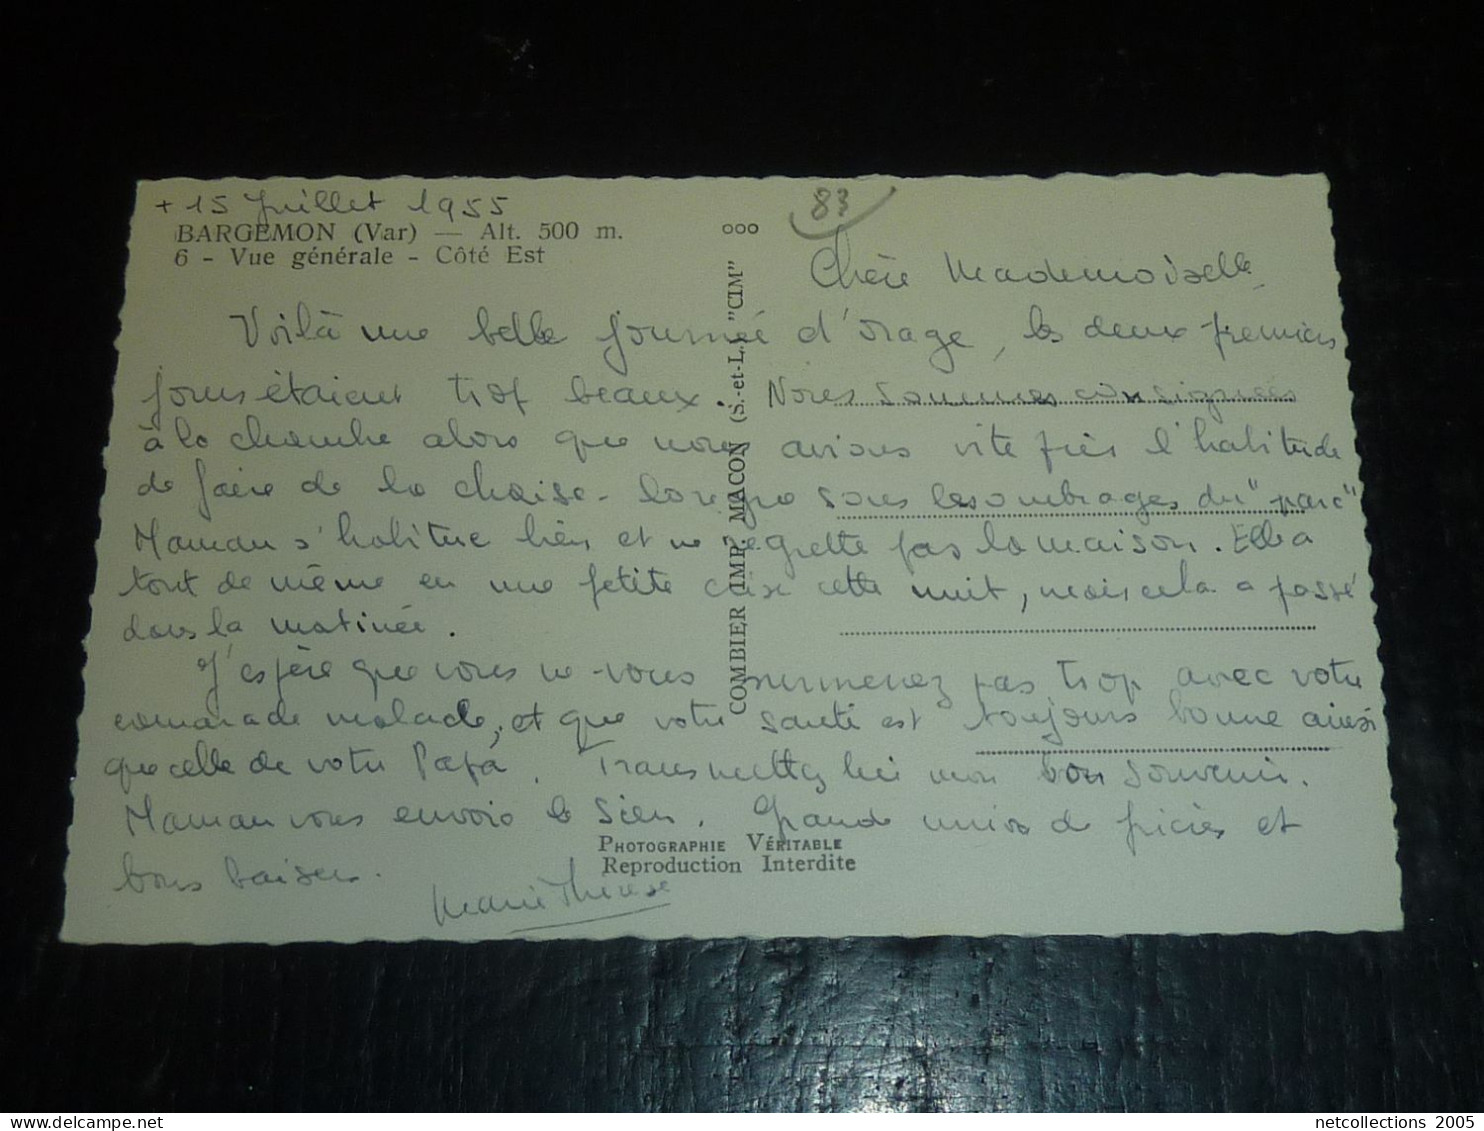 + 15 Juillet 1955
BARGEMON (Var) — Alt. 500 m.
6 - Vue générale - Côté Est
ooo
83
COMBIER IMP. MACON (S.-et-L.) "CIM"
Chère Mademoiselle,
Voilà une belle journée d'orage, les deux premiers
jours étaient trop beaux. Nous sommes consignées
à la chambre alors que nous avions vite pris l'habitude
de faire de la chaise-longue sous les ombrages du "parc"
Maman s'habitue bien et ne regrette pas la maison. Elle a
tout de même eu une petite crise cette nuit, mais cela a passé
dans la matinée.
J'espère que vous ne vous surmenez pas trop avec votre
camarade malade, et que votre santé est toujours bonne ainsi
que celle de votre Papa. Transmettez lui mon bon souvenir.
Maman vous envoie le sien. Grande union de prières et
bons baisers.
Marie Thérèse
PHOTOGRAPHIE VÉRITABLE
Reproduction Interdite
netcollections 2005